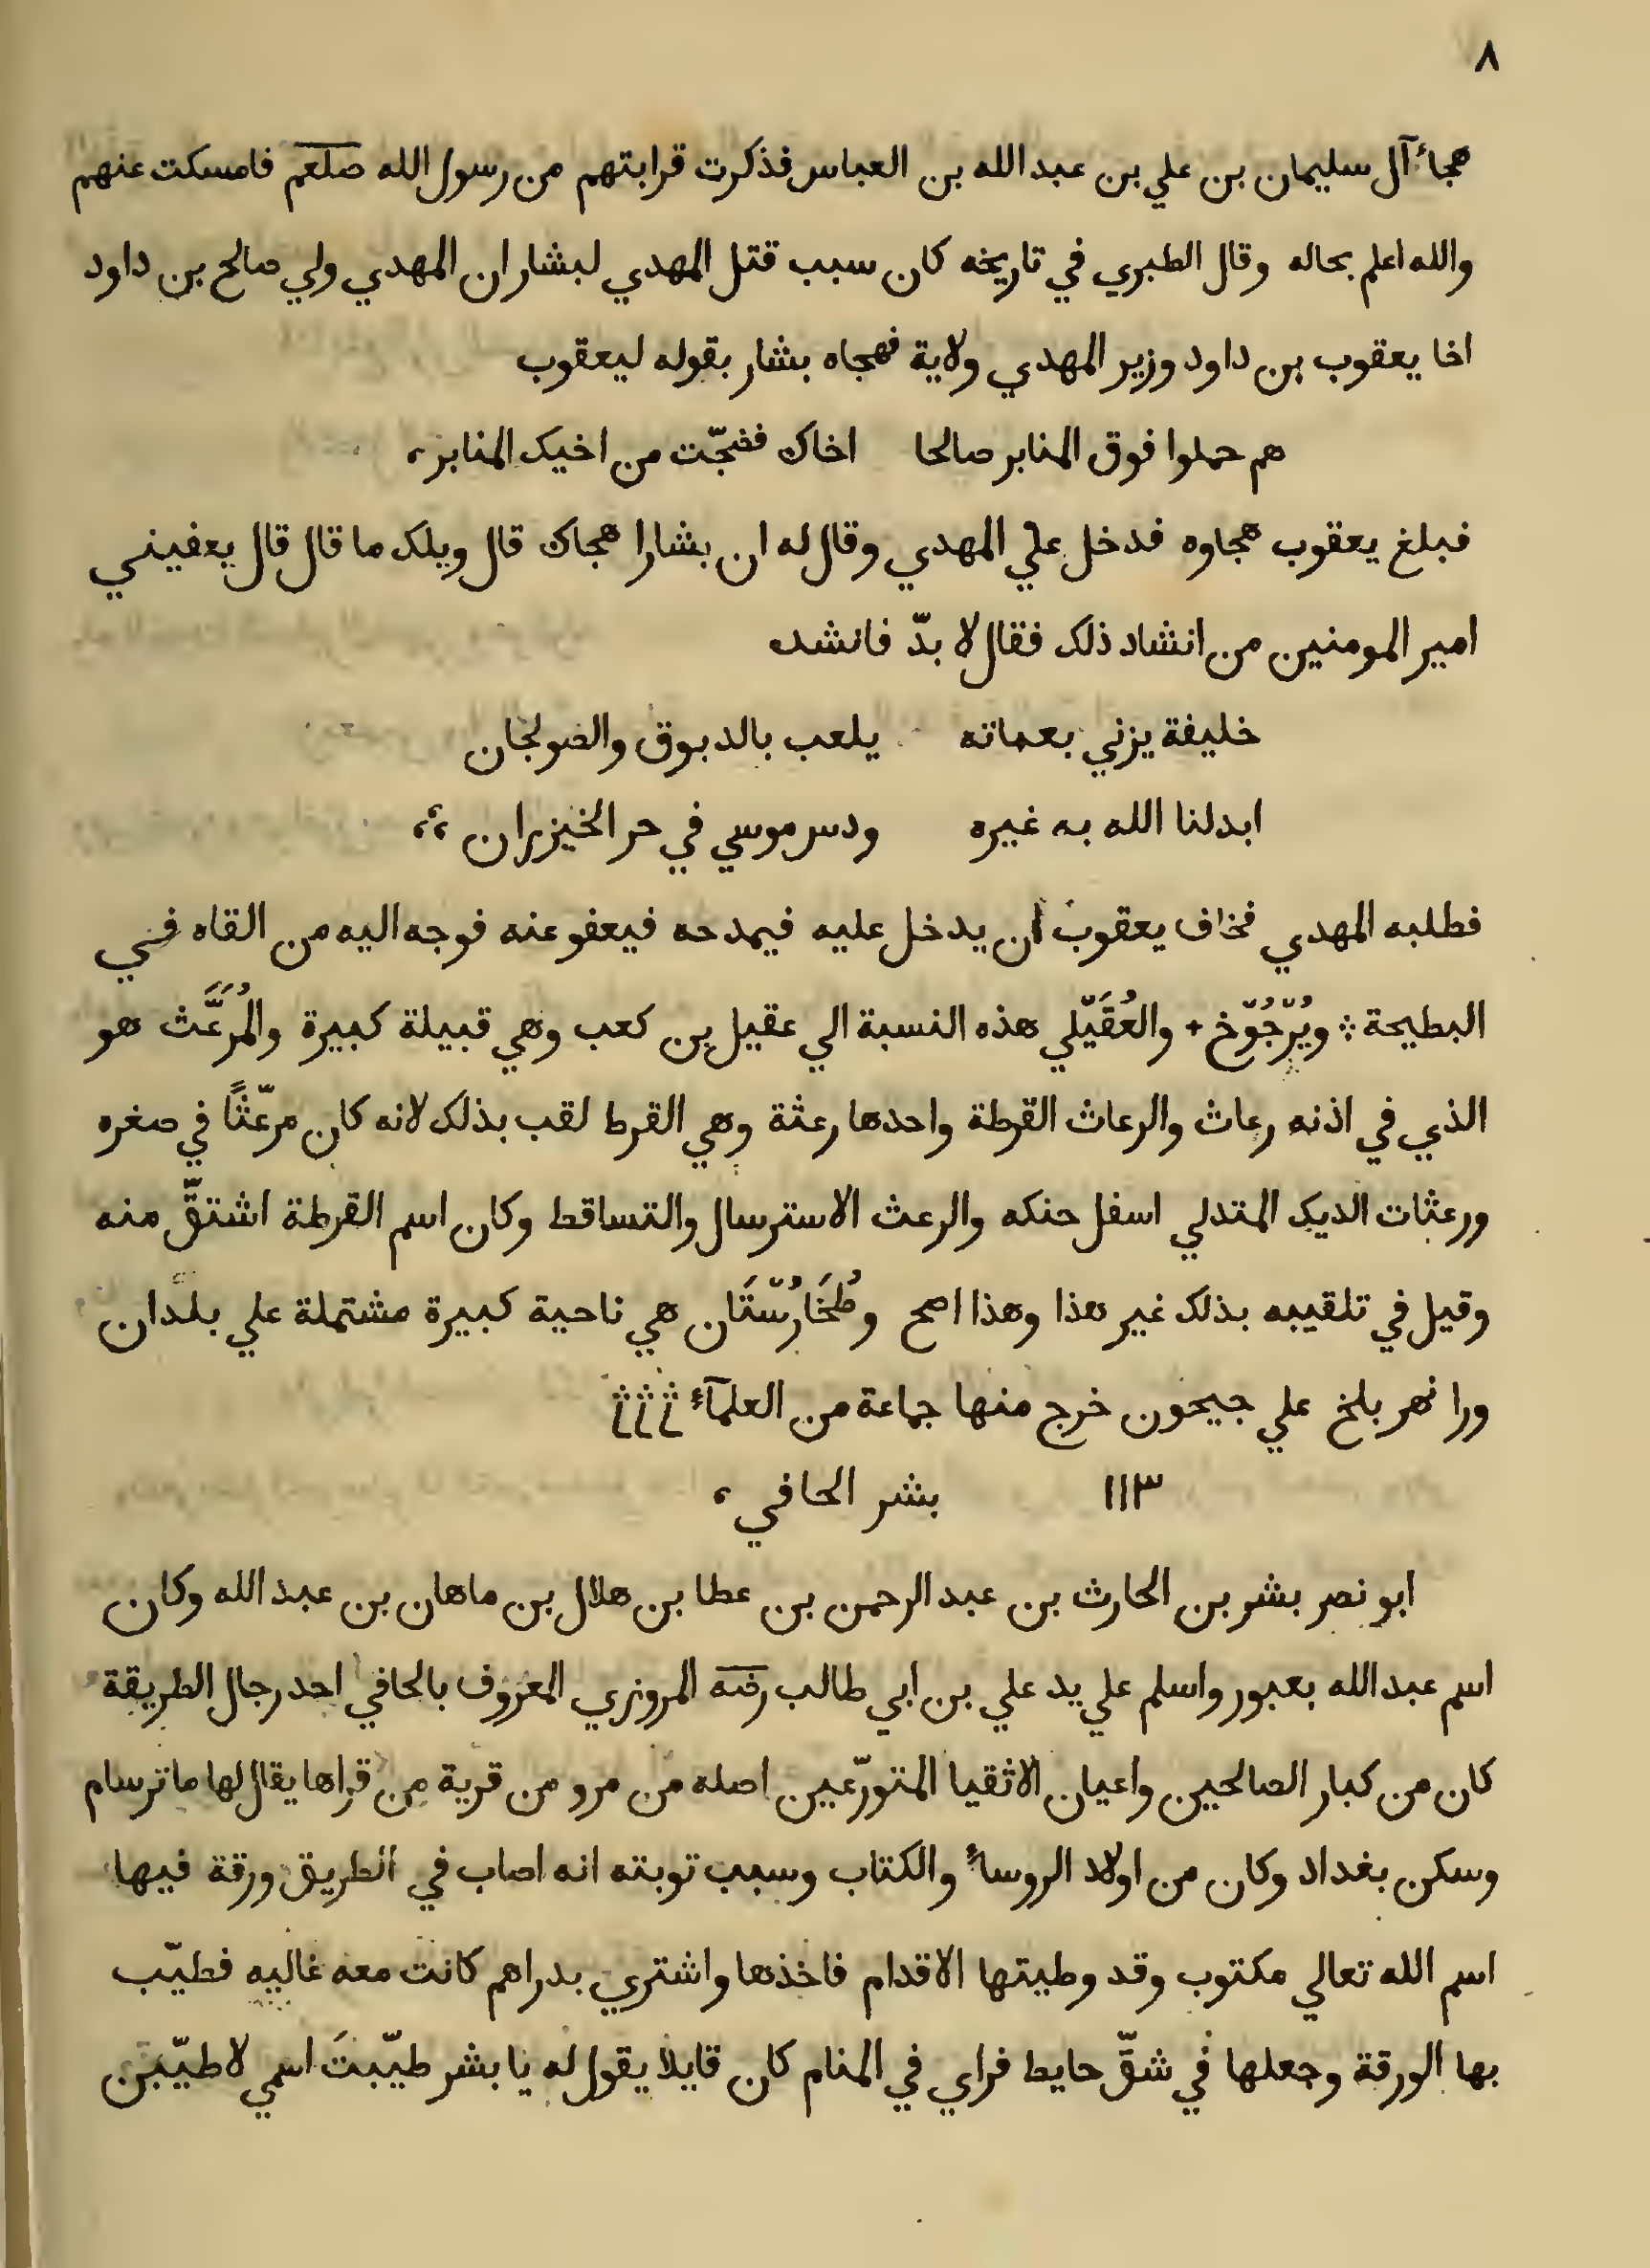 ٨
هجاء آل سليمان بن علي بن عبد الله بن العباس فذكرت قرابتهم من رسول الله صلعم فامسكت عنهم
والله اعلم بحاله وقال الطبري في تاريخه كان سبب قتل المهدي لبشار ان المهدي ولي صالح بن داود
اخا يعقوب بن داود وزير المهدي ولاية فهجاه بشار بقوله ليعقوب
هم حملوا فوق المنابر صالحا اخاك فضجّت من اخيك المنابر،
فبلغ يعقوب هجاوه فدخل علي المهدي وقال له ان بشارا هجاك قال ويلك ما قال قال يعفيني
امير المومنين من انشاد ذلك فقال لا بدّ فانشد
خليفة يزني بعماته يلعب بالدبوق والصولجان
ابدلنا الله به غيره ودس موسي في حر الخيزران
فطلبه المهدي فخاف يعقوب أن يدخل عليه فيمدحه فيعفو عنه فوجه اليه من القاه في
البطيحة ويُرْجُوْخ + والعُقَيْلي هذه النسبة الي عقيل بن كعب وهي قبيلة كبيرة والمُرَعَّث هو
الذي في اذنه رعاث والرعاث القرطة واحدها رعثة وهي القرط لقب بذلك لانه كان مرعّثًا في صغره
ورعثات الديك المتدلي اسفل حنكه والرعث الاسترسال والتساقط وكان اسم القرطة اشتقّ منه
وقيل في تلقيبه بذلك غير هذا وهذا اصح وطُخَارُسْتَان هي ناحية كبيرة مشتملة علي بلدان
ورا نهر بلخ علي جيحون خرج منها جماعة من العلمآء
١١٣ بشر الحافي،
ابو نصر بشر بن الحارث بن عبد الرحمن بن عطا بن هلال بن ماهان بن عبد الله وكان
اسم عبد الله بعبور واسلم علي يد علي بن ابي طالب رضه المروزي المعروف بالحافي احد رجال الطريقة
كان من كبار الصالحين واعيان الاتقيا المتورّعين اصله من مرو من قرية من قراها يقال لها ماترسام
وسكن بغداد وكان من اولاد الروساء والكتاب وسبب توبته انه اصاب في الطريق ورقة فيها
اسم الله تعالي مكتوب وقد وطيتها الاقدام فاخذها واشتري بدراهم كانت معه غاليه فطيّب
بها الورقة وجعلها في شقّ حايط فراي في المنام كان قايلا يقول له يا بشر طيّبتَ اسمي لاطيّبن